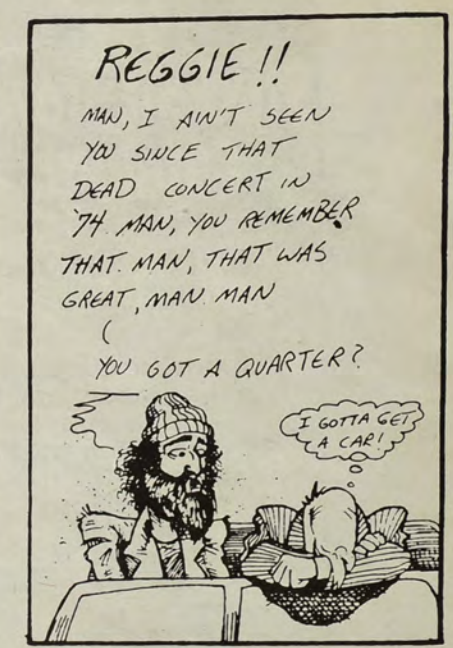 REGGIE!!
MAN, I AIN'T SEEN
YOU SINCE THAT
DEAD CONCERT IN
'74. MAN, YOU REMEMBER
THAT. MAN, THAT WAS
GREAT, MAN. MAN
YOU GOT A QUARTER?
I GOTTA GET
A CAR!